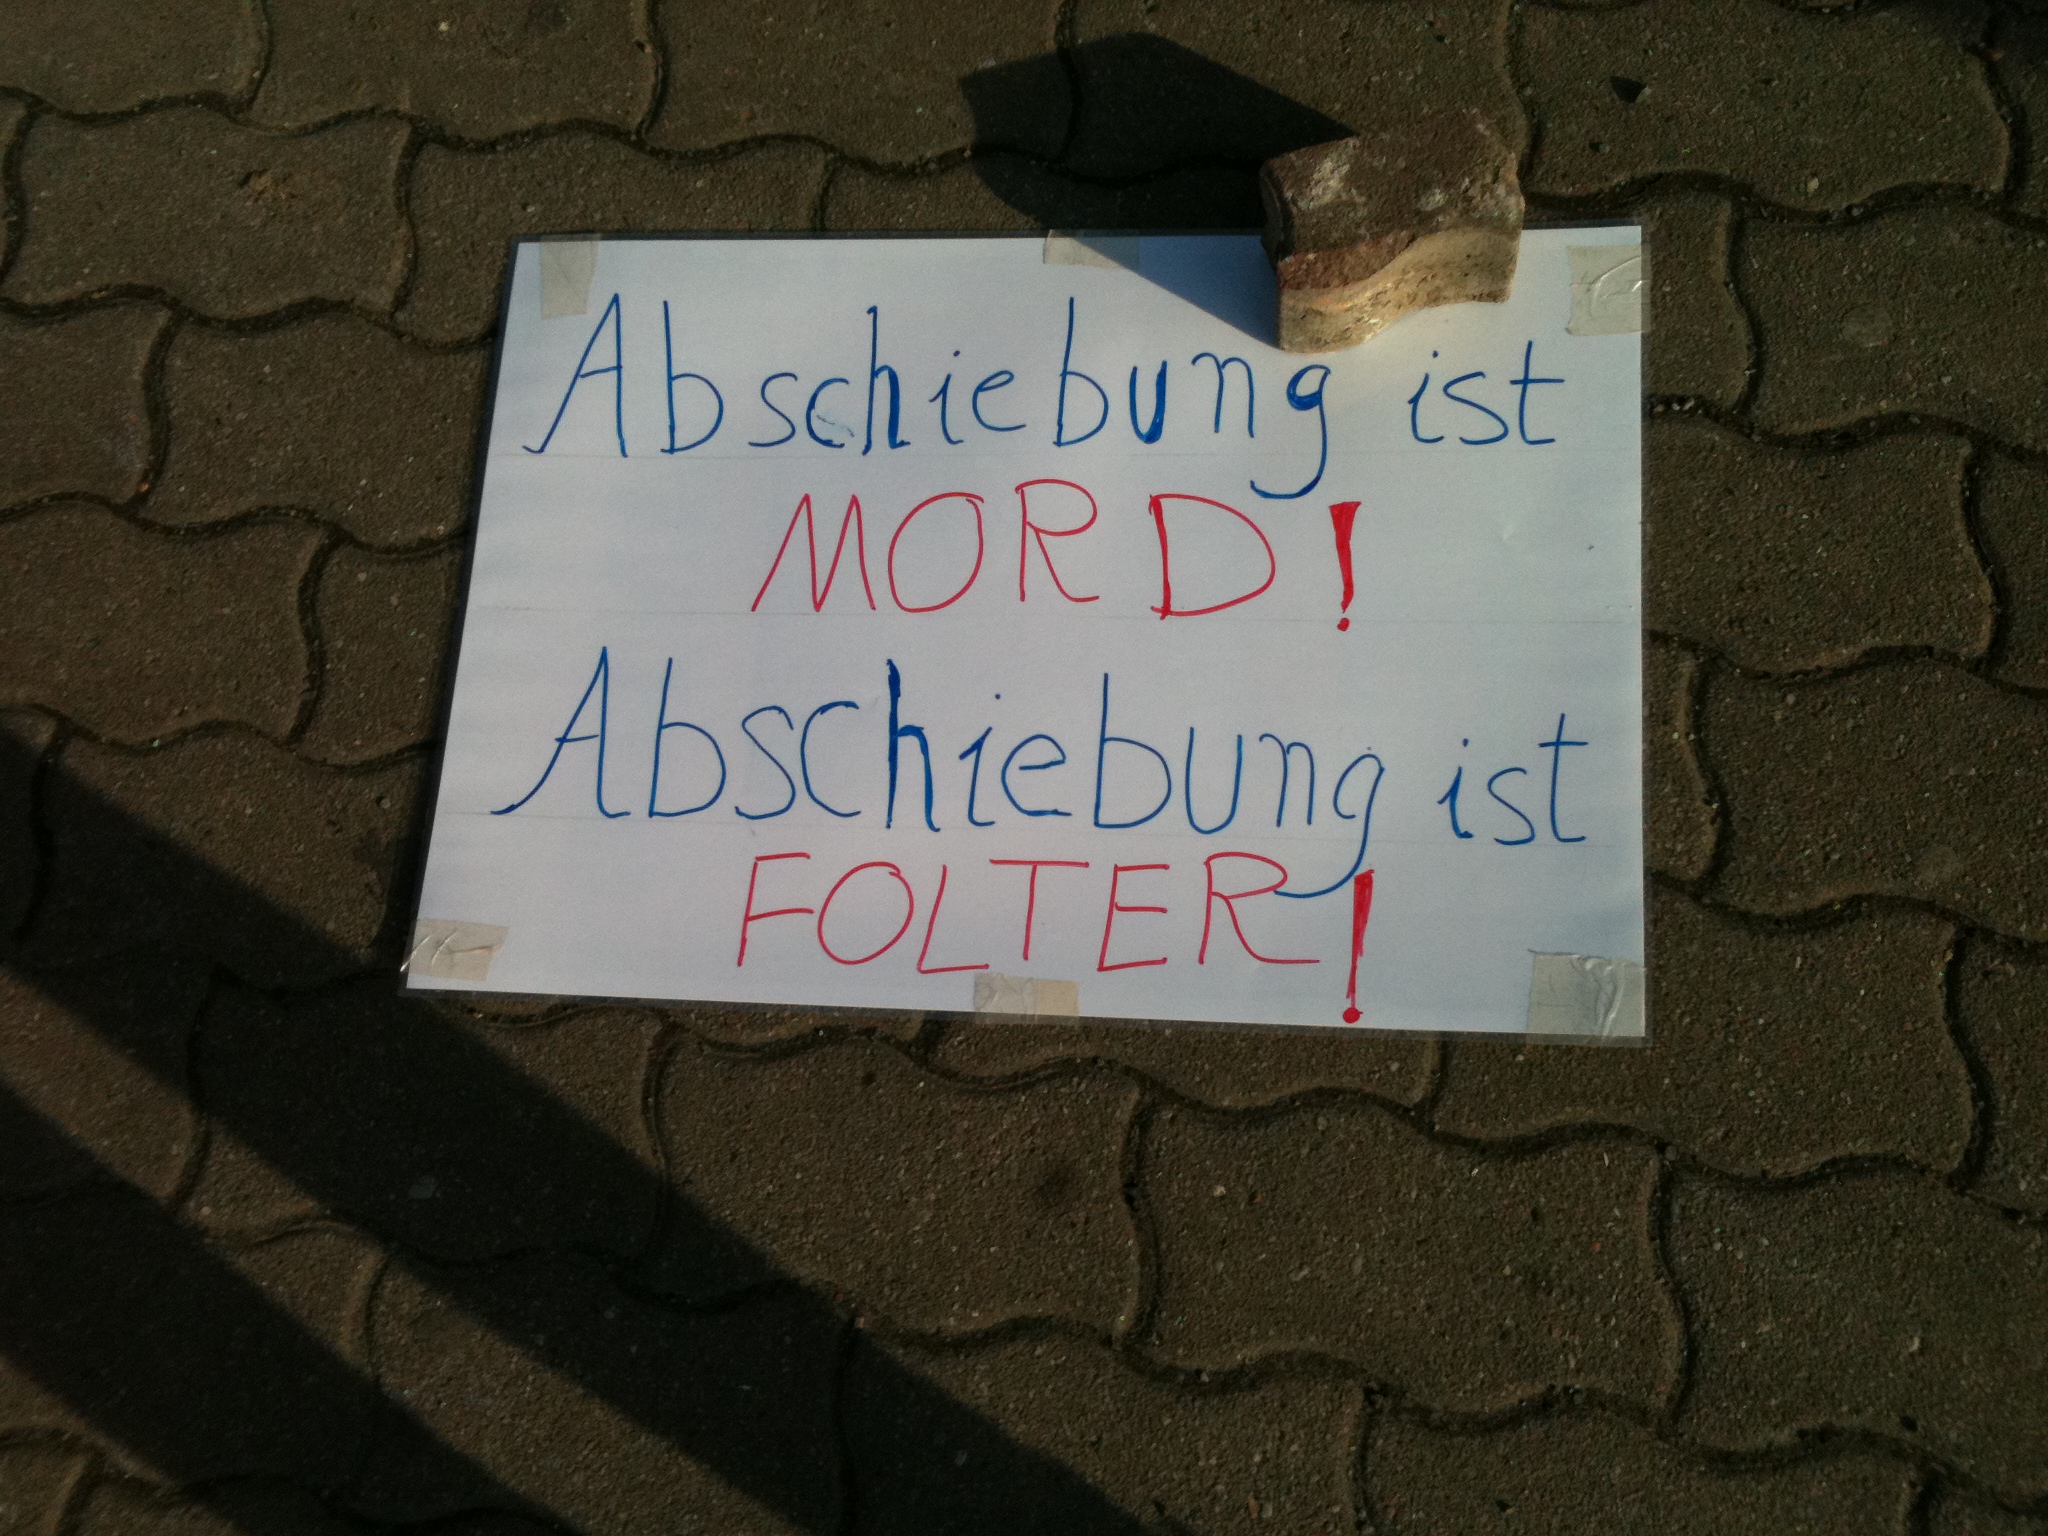 Abschiebung ist
MORD!
Abschiebung ist
FOLTER!